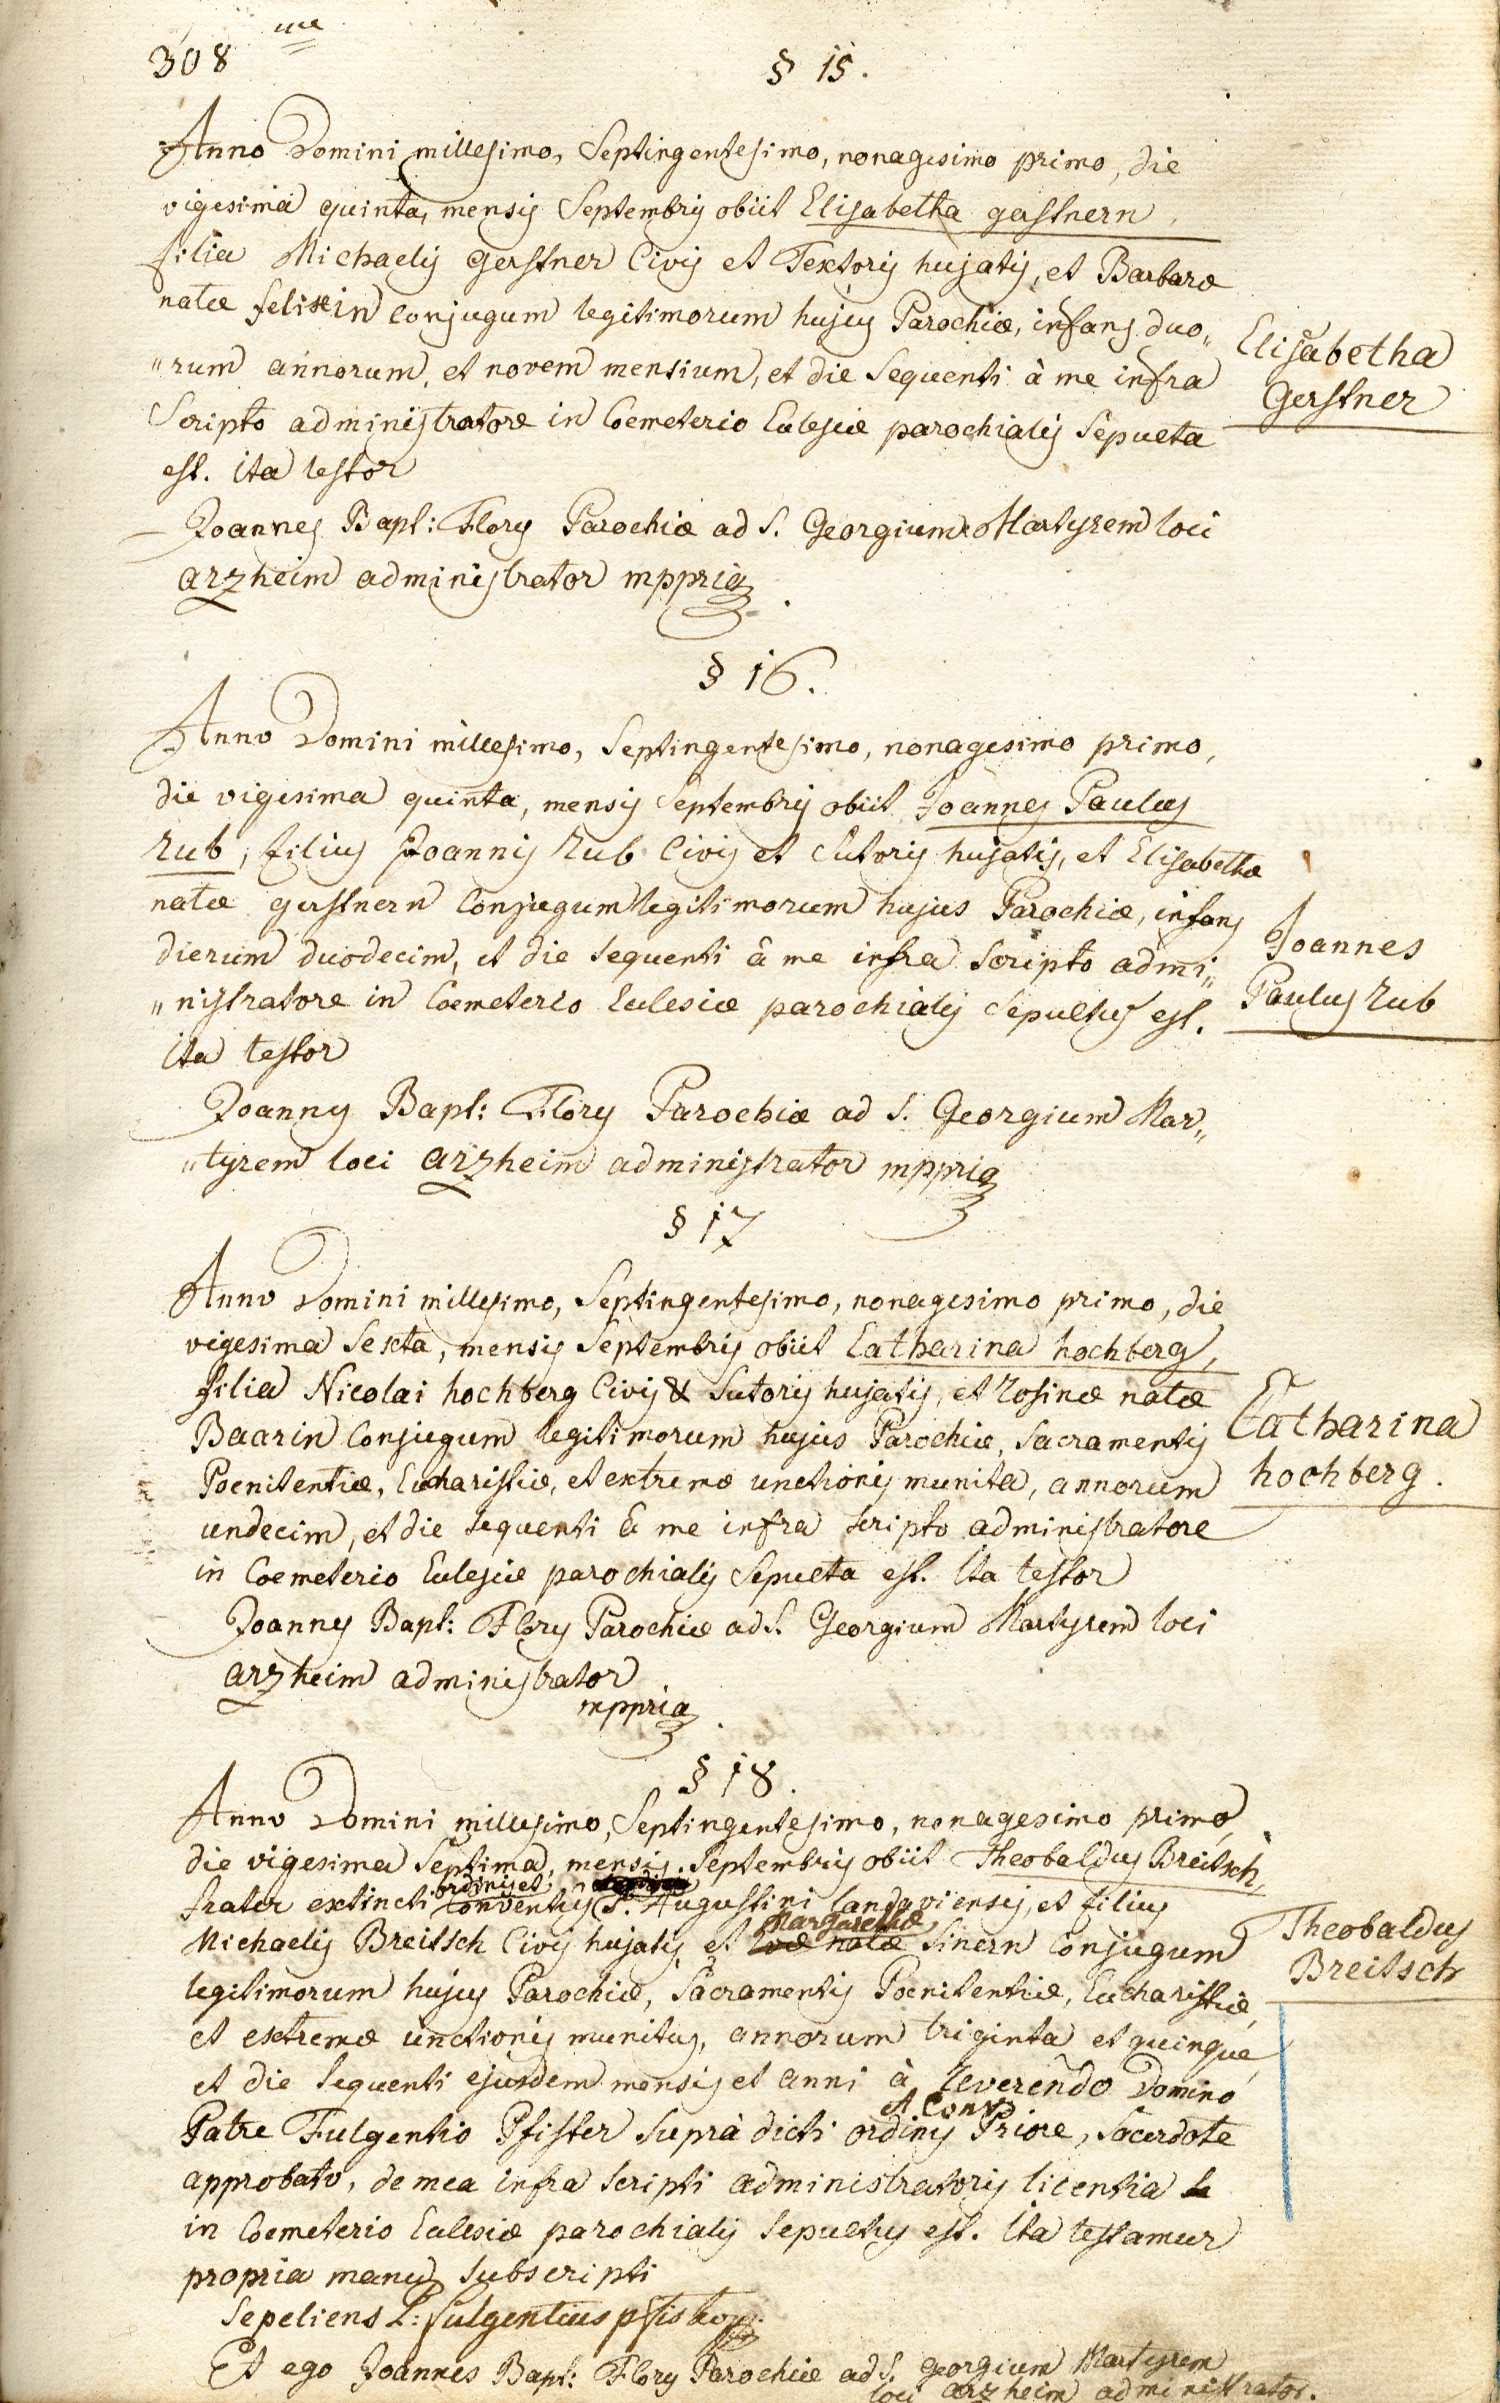 308 me
§ 15.
Anno Domini millesimo, Septingentesimo, nonagesimo primo, die
vigesima quinta, mensis Septembris obiit Elisabetha gerstnern,
filia Michaelis Gerstner Civis et Textoris hujatis, et Barbaræ
natæ felixin Conjugum legitimorum hujus Parochiæ, infans duo„
„rum annorum, et novem mensium, et die Sequenti à me infra
Scripto administratore in Coemeterio Eclesiæ parochialis Sepulta
est. ita testor
Elisabetha
Gerstner
Joannes Bapt: Flory Parochiæ ad S. Georgium Martyrem loci
arzheim administrator mppria
§ 16.
Anno Domini millesimo, Septingentesimo, nonagesimo primo,
die vigesima quinta, mensis Septembris obiit Joannes Paulus
Rub, filius Joannis Rub Civis et Sutoris hujatis, et Elisabethæ
natæ gerstnern Conjugum legitimorum hujus Parochiæ, infans
dierum duodecim, et die sequenti â me infra Scripto admi„
„nistratore in Coemeterio Eclesiæ parochialis Sepultus est.
ita testor
Joannes
Paulus Rub
Joannes Bapt: Flory Parochiæ ad S. Georgium Mar„
„tyrem loci arzheim administrator mppria
§ 17
Anno Domini millesimo, Septingentesimo, nonagesimo primo, die
vigesima Sexta, mensis Septembris obiit Catharina hochberg,
filia Nicolai hochberg Civis & Sutoris hujatis, et Rosinæ natæ
Baarin Conjugum legitimorum hujus Parochiæ, Sacramentis
Poenitentiæ, Eucharistiæ, et extremæ unctionis munita, annorum
undecim, et die sequenti à me infra scripto administratore
in Coemeterio Eclesiæ parochialis Sepulta est. Ita testor
Catharina
hochberg.
Joannes Bapt: Flory Parochiæ ad S. Georgium Martyrem loci
arzheim administrator
mppria
§ 18.
Anno Domini millesimo, Septingentesimo, nonagesimo primo,
die vigesima Septima, mensis Septembris obiit Theobaldus Breitsch,
ordinis et
frater extincti Conventûs S. Augustini landaviensis, et filius
Margarethæ
Michaelis Breitsch Civis hujatis, et Evæ natæ Sinern Conjugum
legitimorum hujus Parochiæ, Sacramentis Poenitentiæ, Eucharistiæ,
et extremæ unctionis munitus, annorum triginta et quinque,
et die sequenti ejusdem mensis et anni à Reverendo Domino
et Conv
Patre Fulgentio Pfister Suprà dicti ordinis Priore, Sacerdote
approbato, de mea infra scripti administratoris licentia
in Coemeterio Eclesiæ parochialis Sepultus est. Ita testamur
propria manu subscripti
Theobaldus
Breitsch
Sepeliens P: fulgentius pfister
Et ego Joannes Bapt: Flory Parochiæ ad S. Georgium Martyrem
loci arzheim administrator.